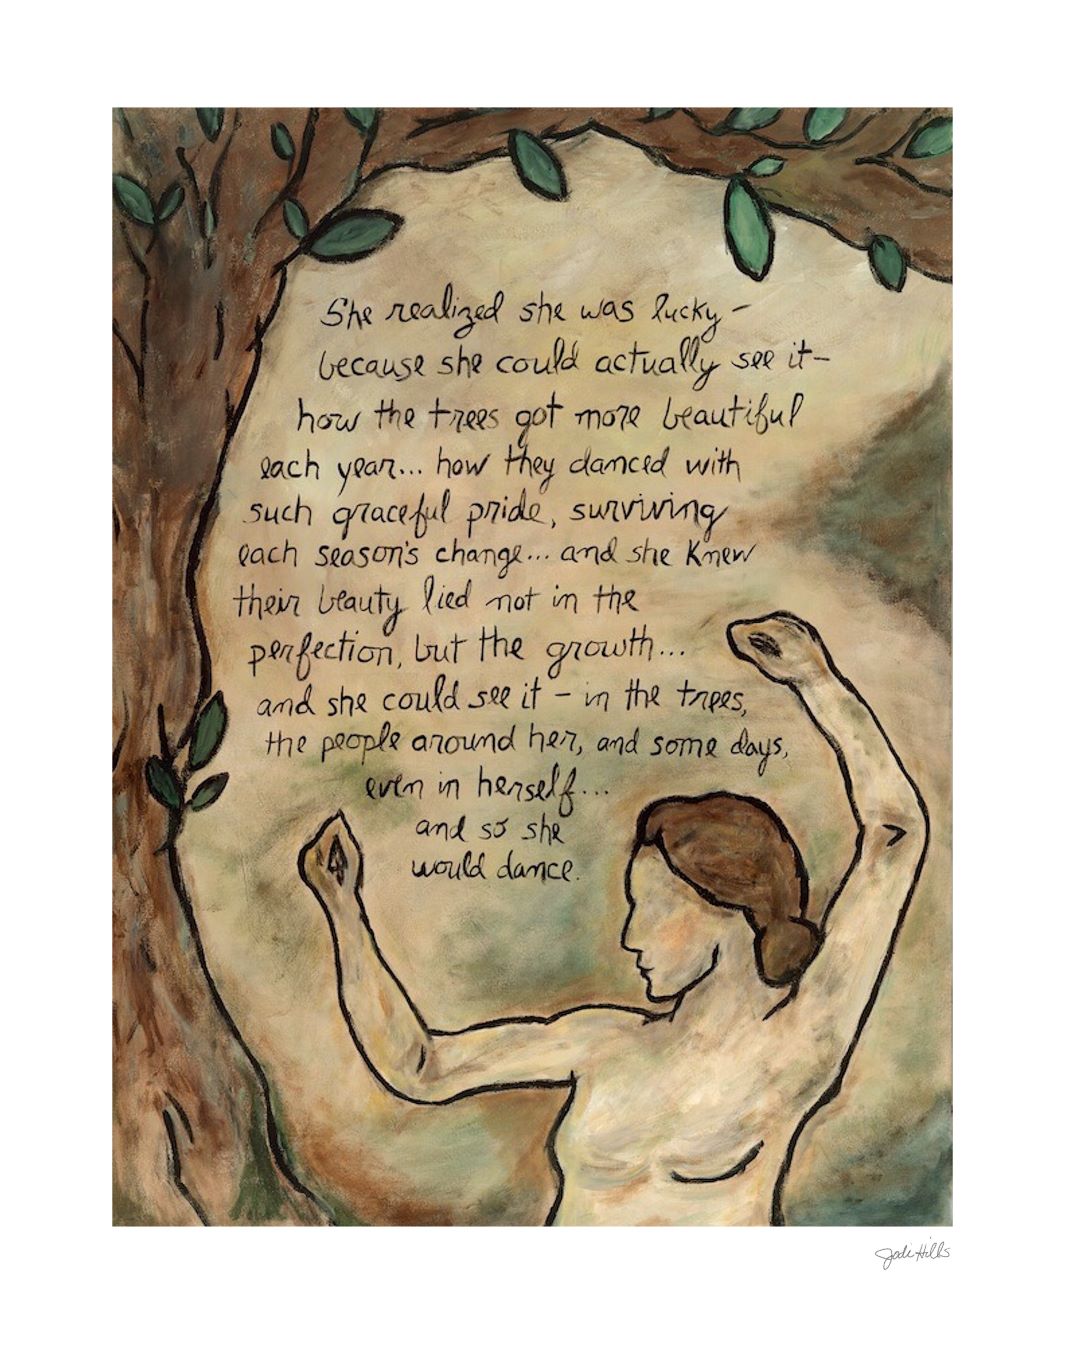 She realized she was lucky –
because she could actually see it –
how the trees got more beautiful
each year... how they danced with
such graceful pride, surviving
each season's change... and she knew
their beauty lied not in the
perfection, but the growth...
and she could see it – in the trees,
the people around her, and some days,
even in herself...
and so she
would dance.
Jodi Hills